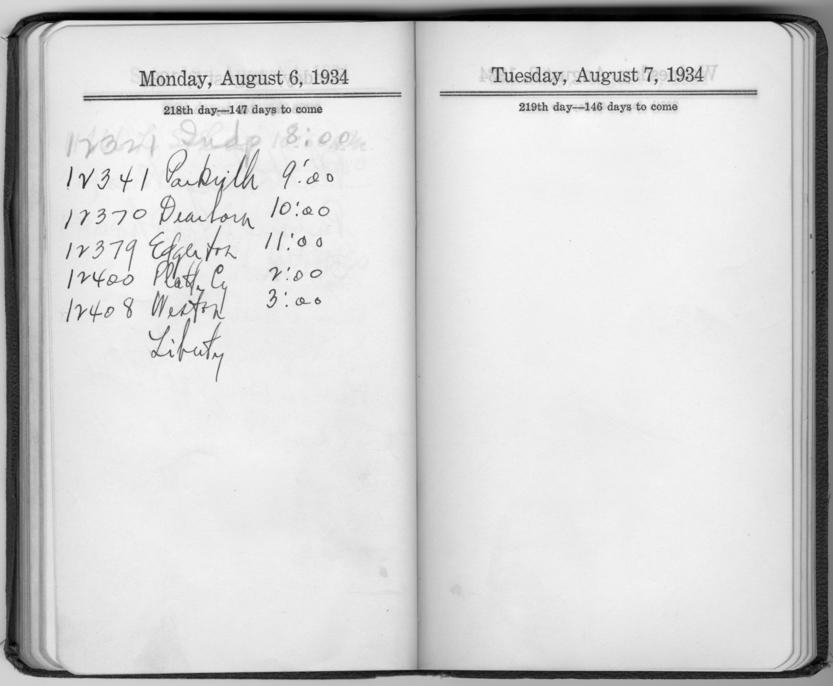 Monday, August 6, 1934
218th day—147 days to come
12321 Indp 8:00
12341 Parkville 9:00
12370 Dearborn 10:00
12379 Edgerton 11:00
12400 Platte Cy 2:00
12408 Weston 3:00
Liberty
Tuesday, August 7, 1934
219th day—146 days to come